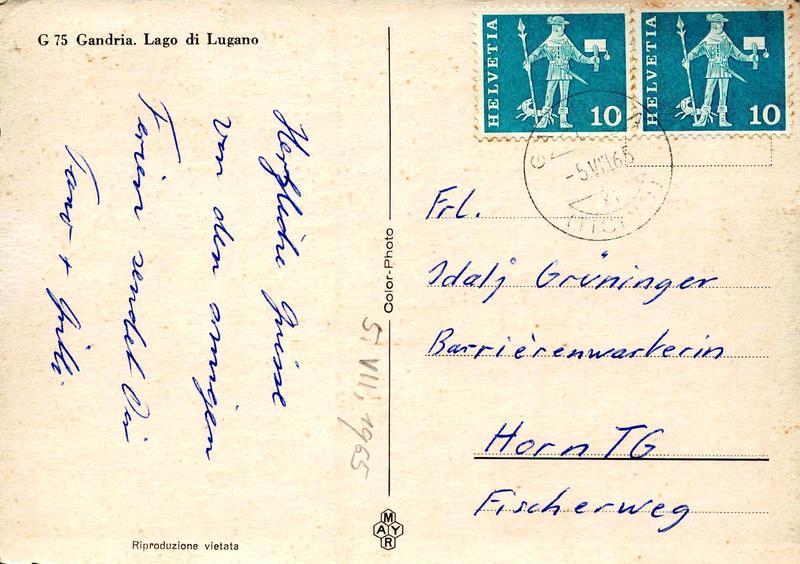 G 75 Gandria. Lago di Lugano
HELVETIA
10
HELVETIA
10
-5.VIII.65
Herzliche Grüsse
von den sonnigen
Ferien sendet Dir
Color-Photo
5. VIII. 1965
Frl.
Idalj Grüninger
Barrièrenwärterin
Horn TG
Fischerweg
MAYR
Riproduzione vietata